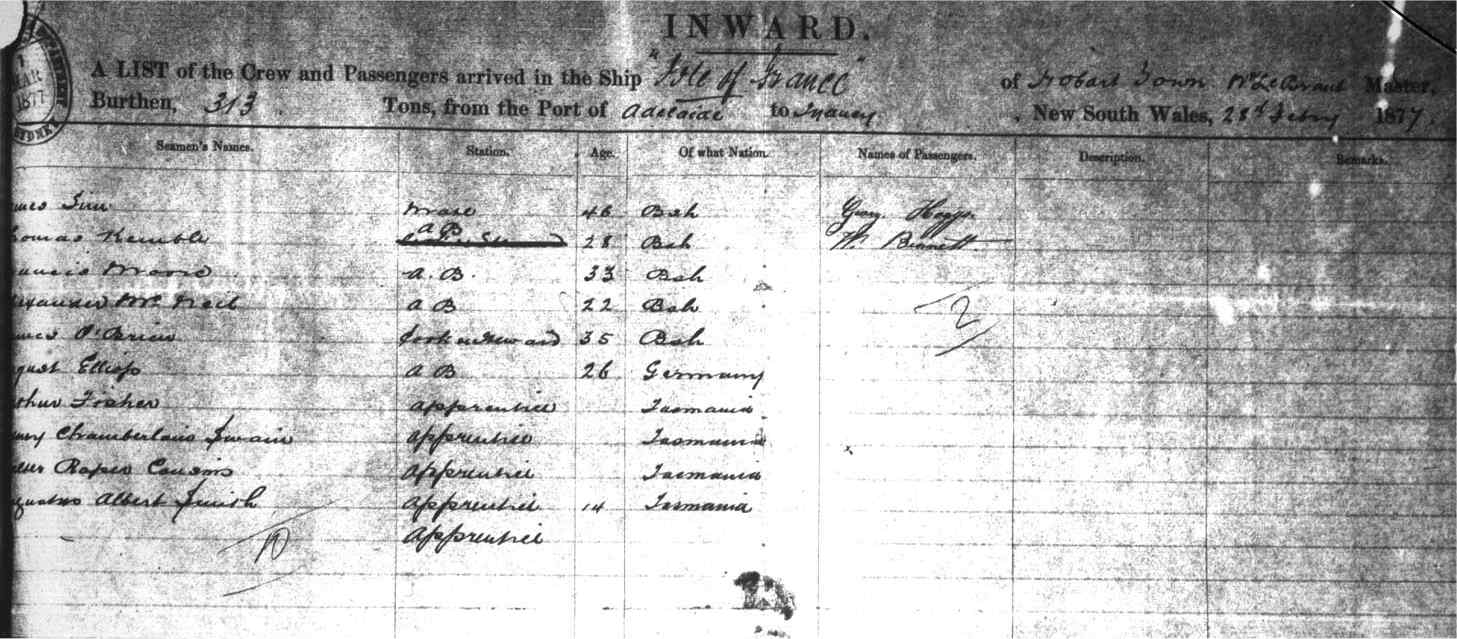 INWARD.
A LIST of the Crew and Passengers arrived in the Ship "Isle of France" of Hobart Town Master,
Burthen, 313 Tons, from the Port of Adelaide to New South Wales, 28th Febry 1877
MAR
1877
SYDNEY
Seamen's Names. Station. Age. Of what Nation. Names of Passengers. Description. Remarks.
Mate 46 Bsh Geo. Hoggs
homas Kemble A B 28 Bsh W. Bennett
ancis Moore A. B. 33 Bsh
lexander McNeil A B 22 Bsh 2
mes O'Brien Cook & Steward 35 Bsh
gust A B 26 Germany
thur Fisher Apprentice Tasmania
enry Chamberlain Swain Apprentice Tasmania
Roper Cousins Apprentice Tasmania
gustus Albert Smith Apprentice 14 Tasmania
10 Apprentice